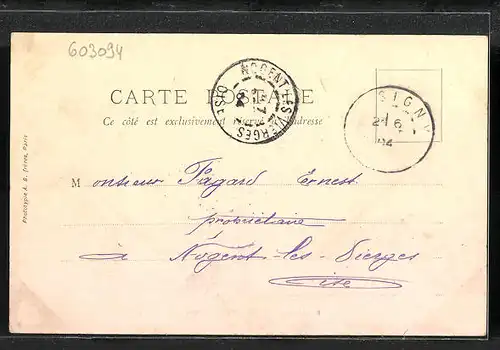 603094
CARTE POSTALE
Ce côté est exclusivement réservé à l'adresse
NOGENT-LES-VIERGES OISE
SIGNY
21 6 04
Monsieur Pagard Ernest
propriétaire
à Nogent-les-Vierges
Oise
Phototypie A. B. frères, Paris